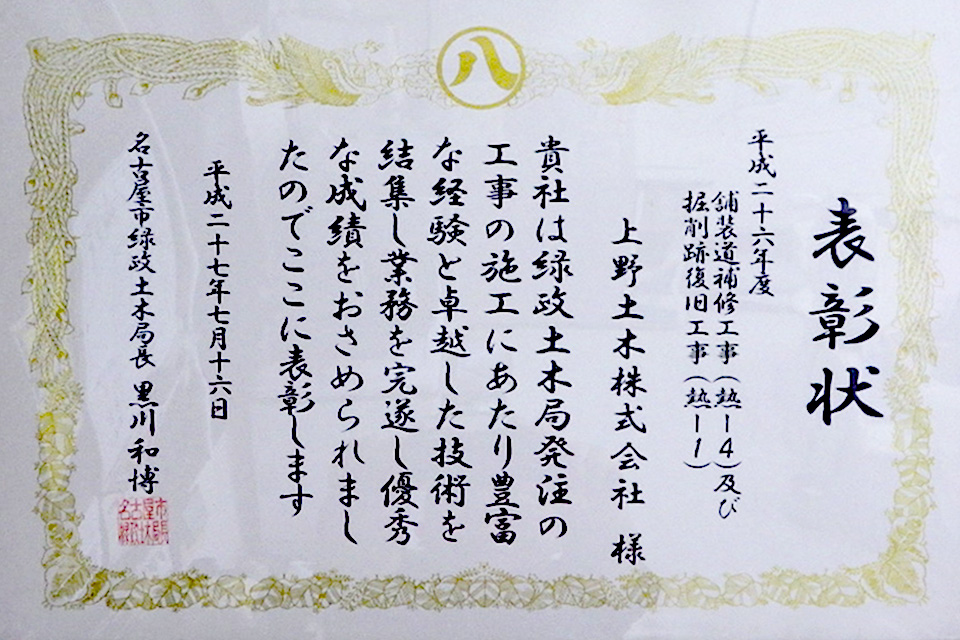 八
表彰状
平成二十六年度
舗装道補修工事(熱ー4)及び
掘削跡復旧工事(熱ー1)
上野土木株式会社 様
貴社は緑政土木局発注の
工事の施工にあたり豊富
な経験と卓越した技術を
結集し業務を完遂し優秀
な成績をおさめられまし
たのでここに表彰します
平成二十七年七月十六日
名古屋市緑政土木局長 黒川和博